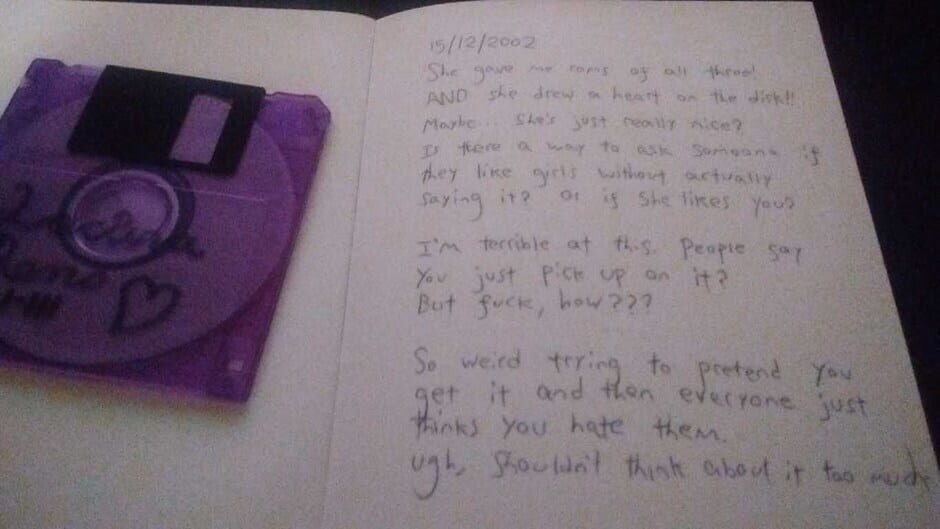 Roms
15/12/2002
She gave me roms of all three!
AND she drew a heart on the disk!!
Maybe... She's just really nice?
Is there a way to ask someone if
they like girls without actually
saying it? Or if she likes you?
I'm terrible at this. People say
you just pick up on it?
But fuck, how???
So weird trying to pretend you
get it and then everyone just
thinks you hate them.
ugh, shouldn't think about it too much